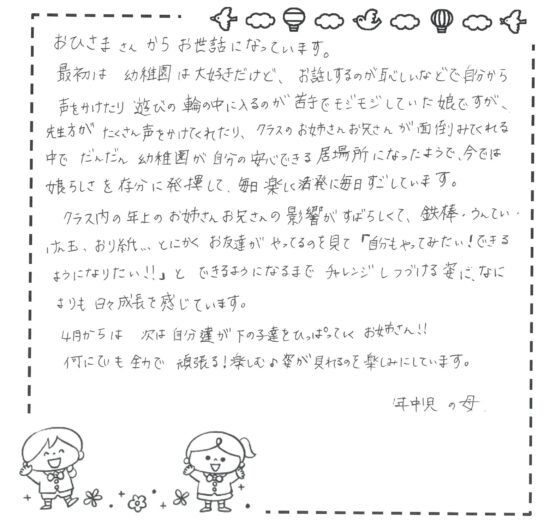 おひさまさんからお世話になっています。
最初は 幼稚園は大好きだけど、お話しするのが恥しいなどで自分から
声をかけたり 遊びの輪の中に入るのが苦手でモジモジしていた娘ですが、
先生方が たくさん声をかけてくれたり、クラスのお姉さんお兄さんが面倒みてくれる
中で だんだん 幼稚園が自分の安心できる居場所になったようで、今では
娘らしさを存分に発揮して、毎日楽しく活発に毎日すごしています。
クラス内の年上のお姉さんお兄さんの影響がすばらしくて、鉄棒・うんてい・
けん玉、おり紙… とにかく お友達が やってるのを見て「自分もやってみたい!できる
ようになりたい!!」と できるようになるまで チャレンジしつづける姿に、なに
よりも 日々成長を感じています。
4月からは 次は自分達が下の子達をひっぱっていく お姉さん!!
何にでも 全力で 頑張る!楽しむ♪姿が見れるのを楽しみにしています。
年中児 の母